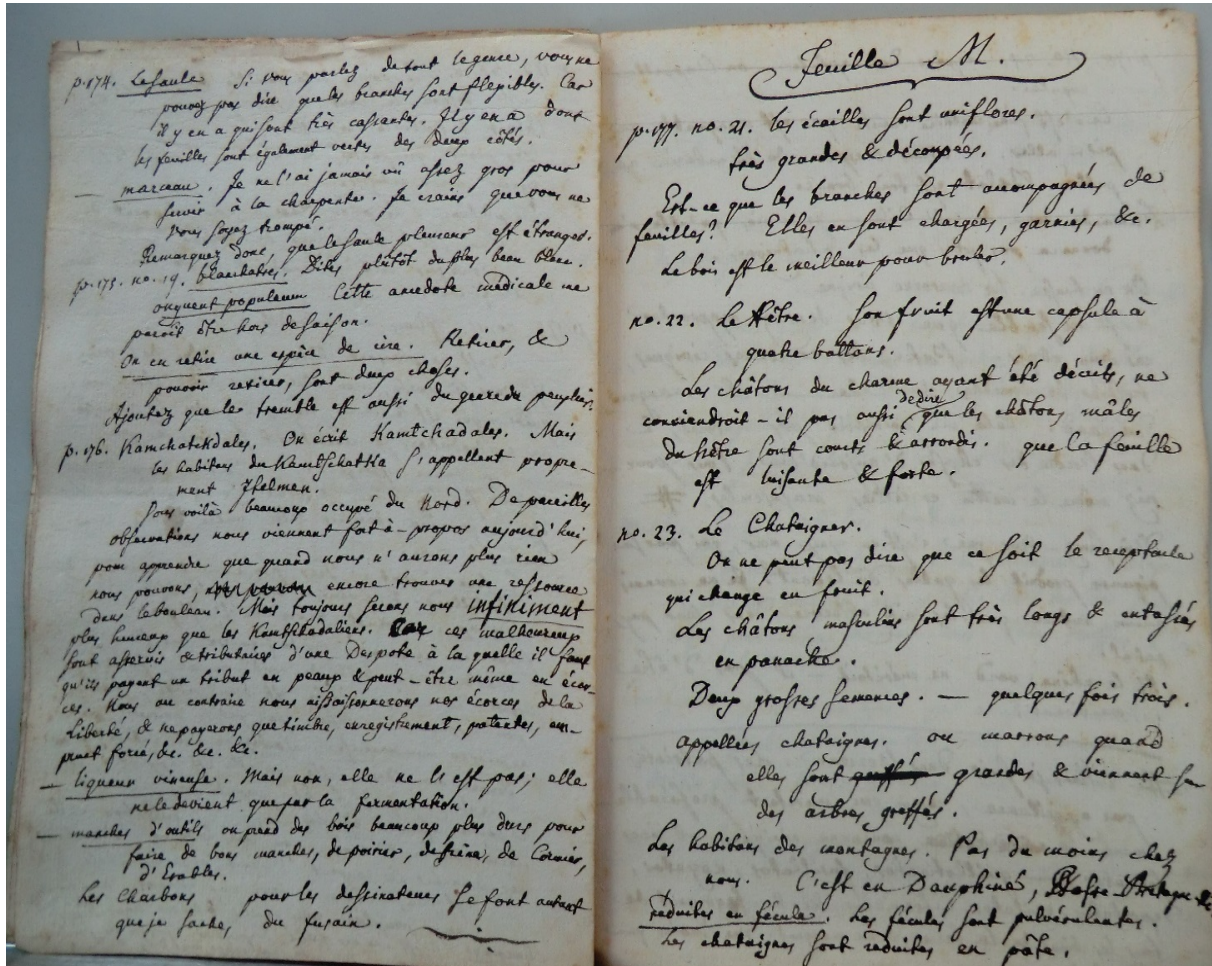 p. 174. Le Saule Si vous parlez de tout le genre, vous ne
pouvez pas dire que les branches sont flexibles. Car
il y en a qui sont très cassantes. Il y en a dont
les feuilles sont également vertes des deux côtés.
— marceau. Je ne l'ai jamais vû assez gros pour
servir à la charpente. Je crains que vous ne
vous soyez trompé.
Remarquez donc, que le saule pleureur est étranger.
p. 175. no. 19. blanchatres. Dites plutôt du plus beau blanc.
onguent populeum Cette anecdote médicale me
paroit être hors de saison.
On en retire une espèce de cire. Retirer, &
pouvoir retirer, sont deux choses.
Ajoutez que le tremble est aussi du genre du peuplier.
p. 176. Kamchatckdales. On écrit Kamtchadales. Mais
les habitans du Kamtschatka s'appellent propre-
ment Itelmen.
Vous voilà beaucoup occupé du Nord. De pareilles
observations nous viennent fort à-propos aujourd'hui,
pour apprendre que quand nous n'aurons plus rien
nous pouvons, encore trouver une ressource
dans le bouleau. Mais toujours serons nous infiniment
plus heureux que les Kamtschadaliens. Car ces malheureux
sont asservis & tributaires d'une Despote à la quelle il faut
qu'ils payent un tribut en peaux & peut-être même en écor-
ces. Nous au contraire nous assaisonnerons nos écorces de la
Liberté, & ne payerons que timbre, enregistrement, patentes, em-
prunt forcé, &c. &c. &c.
— liqueur vineuse. Mais non, elle ne l'est pas; elle
ne le devient que par la fermentation.
— manches d'outils on prend des bois beaucoup plus durs pour
faire de bons manches, de poirier, de frêne, de Cormier,
d'Erables.
Les Charbons pour les dessinateurs se font autant
que je sache, du fusain.
Feuille M.
p. 177. no. 21. les écailles sont uniflores.
très grandes & découpées.
Est-ce que les branches sont accompagnées de
feuilles? Elles en sont chargées, garnies, &c.
Le bois est le meilleur pour bruler.
no. 22. Le Hêtre. Son fruit est une capsule à
quatre battans.
Les châtons du charme ayant été décrits, ne
conviendroit-il pas aussi de dire que les châtons mâles
du hêtre sont courts & arrondis. que la feuille
est luisante & forte.
no. 23. Le Chataigner.
On ne peut pas dire que ce soit le receptacle
qui change en fruit.
Les châtons masculins sont très longs & entassés
en panache.
Deux grosses semences. — quelques fois trois.
appellées chataignes. ou marrons quand
elles sont grandes & viennent sur
des arbres greffés.
Les habitans des montagnes. Pas du moins chez
nous. C'est en Dauphiné, Basse Bretagne &c.
réduites en fécule. Les fécules sont pulvérulantes.
Les chataignes sont réduites en pâte.